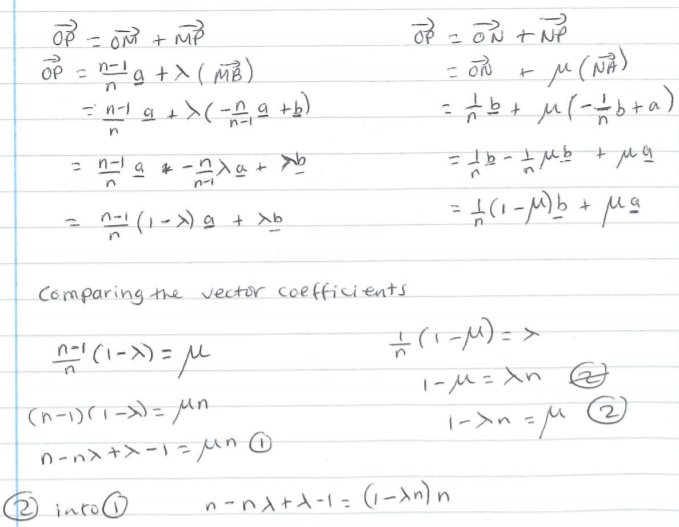 OP→ = OM→ + MP→
OP→ = n-1/n a + λ(MB→)
= n-1/n a + λ(-n/n-1 a + b)
= n-1/n a + -n/n-1 λa + λb
= n-1/n (1-λ) a + λb
OP→ = ON→ + NP→
= ON→ + μ(NA→)
= 1/n b + μ(-1/n b + a)
= 1/n b - 1/n μb + μa
= 1/n (1-μ)b + μa
Comparing the vector coefficients
n-1/n (1-λ) = μ
(n-1)(1-λ) = μn
n-nλ+λ-1 = μn ①
1/n (1-μ) = λ
1-μ = λn ②
1-λn = μ ②
② into ① n-nλ+λ-1 = (1-λn)n